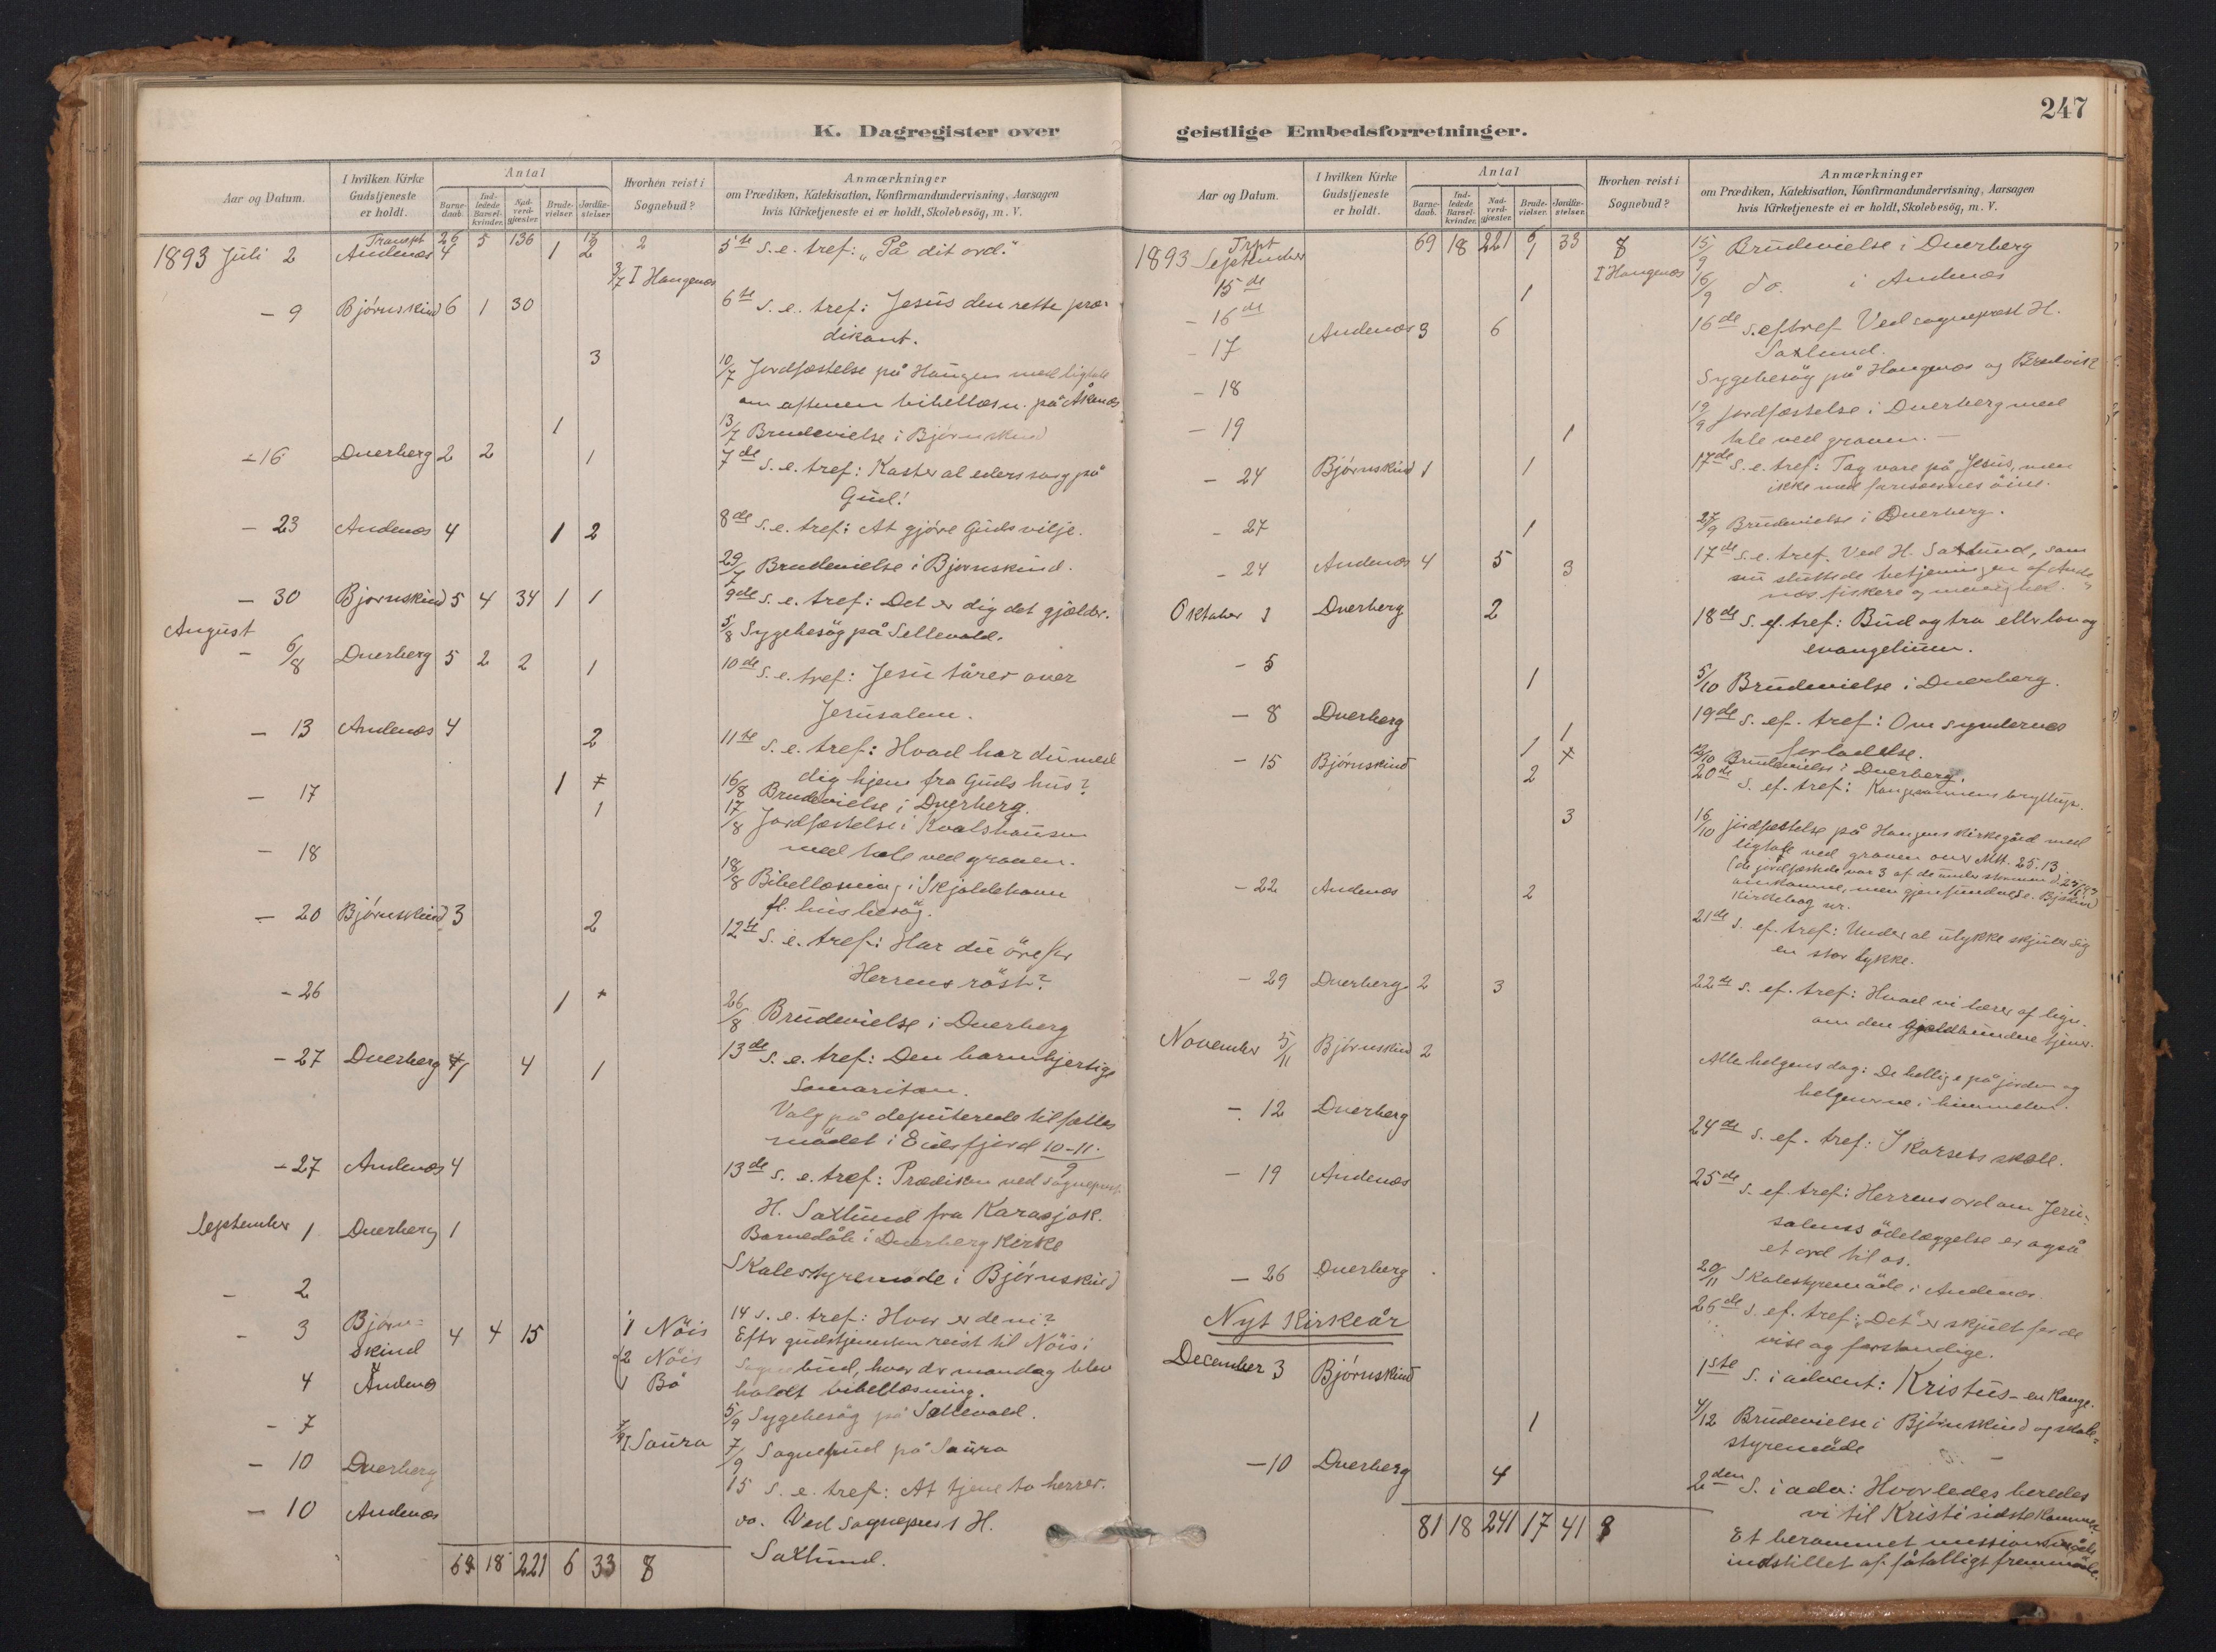 K. Dagregister over
Aar og Datum.
I hvilken Kirke Gudstjeneste er holdt.
Antal
Barne-daab.
Ind-ledede Barsel-kvinder.
Nad-verd-gjæster.
Brude-vielser.
Jordfæ-stelser.
Hvorhen reist i Sognebud?
Anmærkninger
om Prædiken, Katekisation, Konfirmandundervisning, Aarsagen
hvis Kirketjeneste ei er holdt, Skolebesög, m. V.
Transpt 26 5 136 17 2
1893 Juli 2 Andenæs 4 1 2 5te s. e. tref: „På dit ord."
3/7 1 Haugenes
- 9 Bjørnskind 6 1 30 6te s. e. tref: Jesus den rette præ-
dikant.
3 10/7 Jordfæstelse på Haugen med ligtale
om aftenen bibellæsn. på Åknæs
1 13/7 Brudevielse i Bjørnskind
- 16 Dverberg 2 2 1 7de s. e. tref: Kaster al eders sorg på
Gud!
- 23 Andenæs 4 1 2 8de s. e. tref: At gjöre Guds vilje.
29/7 Brudevielse i Bjørnskind.
- 30 Bjørnskind 5 4 34 1 1 9de s. e. tref: Det er dig det gjælder.
August 5/8 Sygebesög på Sellevold.
- 6/8 Dverberg 5 2 2 1 10de s. e. tref: Jesu tårer over
Jerusalem.
- 13 Andenæs 4 2 11te s. e. tref: Hvad har du med
dig hjem fra Guds hus?
1 16/8 Brudevielse i Dverberg.
- 17 1 17/8 Jordfæstelse i Kvalshausen
med tale ved graven.
- 18 18/8 Bibellæsning i Skjoldehavn
fl. husbesög.
- 20 Bjørnskind 3 2 12te s. e. tref: Har du öre for
Herrens röst?
- 26 1 26/8 Brudevielse i Dverberg
- 27 Dverberg 1 4 1 13de s. e. tref: Den barmhjertige
Samaritan.
Valg på deputerede til fælles
mödet i Eidsfjord 10-11/9
- 27 Andenæs 4 13de s. e. tref: Prædiken ved sognepræst
H. Saxlund fra Karasjok.
September 1 Dverberg 1 Barnedåb i Dverberg Kirke
- 2 Skolestyremöde i Bjørnskind
- 3 Bjørn-
skind 4 4 15 1 Nöis 14 s. e. tref: Hvor er de ni?
2 Nöis Efter gudstjenesten reist til Nöis i
4 Andenæs 1 Bö Sognebud, hvor der mandag blev
holdt bibellæsning.
5/9 Sygebesög på Sellevold.
- 7 7/9 1 Saura 7/9 Sognebud på Saura
- 10 Dverberg 15 s. e. tref: At tjene to herrer.
- 10 Andenæs do. Ved Sognepræst H.
Saxlund.
69 18 221 6 33 8
247
geistlige Embedsforretninger.
Aar og Datum.
I hvilken Kirke Gudstjeneste er holdt.
Antal
Barne-daab.
Ind-ledede Barsel-kvinder.
Nad-verd-gjæster.
Brude-vielser.
Jordfæ-stelser.
Hvorhen reist i Sognebud?
Anmærkninger
om Prædiken, Katekisation, Konfirmandundervisning, Aarsagen
hvis Kirketjeneste ei er holdt, Skolebesög, m. V.
Trpt 69 18 221 6 33 8
1893 September
15de 1 1 Haugenes 15/9 Brudevielse i Dverberg
- 16de 1 16/9 do. i Andenæs
- 17 Andenæs 3 6 16de s. ef tref Ved sognepræst H.
Saxlund.
- 18 Sygebesög på Haugenes og Breivik
- 19 1 19/9 Jordfæstelse i Dverberg med
tale ved graven. -
- 24 Bjørnskind 1 1 17de s. e. tref: Tag vare på Jesus, men
ikke med farisæernes öine.
- 27 1 27/9 Brudevielse i Dverberg.
- 24 Andenæs 4 5 3 17de s. e. tref. Ved H. Saxlund, som
nu sluttede betjeningen af Ande-
næs fiskere og menighed.
Oktober 1 Dverberg 2 18de s. ef. tref: Bud og tro eller lov og
evangelium.
- 5 1 5/10 Brudevielse i Dverberg.
- 8 Dverberg 1 19de s. ef. tref: Om syndernes
forladelse.
1 13/10 Brudevielse i Dverberg.
- 15 Bjørnskind 2 20de s. ef. tref: Kongesønnens bryllup.
3 16/10 jordfæstelse på Haugens kirkegård med
ligtale ved graven over Mtt. 25.13
(de jordfæstede var 3 af de under stormen
omkomne, men gjenfundne) se. Bjskind
Kirkebog nr.
- 22 Andenæs 2 21de s. ef. tref: Under al ulykke skjuler sig
en stor lykke.
- 29 Dverberg 2 3 22de s. ef. tref: Hvad vi lærer af lign.
om den gjældbundne tjener.
November 5/11 Bjørnskind 2 Alle helgens dag: De hellige på jorden og
helgenerne i himmelen.
- 12 Dverberg 24de s. ef. tref: I korsets skole.
- 19 Andenæs 25de s. ef. tref: Herrens ord om Jeru-
salems ödelæggelse er også
et ord til os.
20/11 Skolestyremöde i Andenæs.
- 26 Dverberg 26de s. ef. tref: Det er skjult for de
vise og forstandige.
Nyt Kirkeår
December 3 Bjørnskind 1ste S. i advent: Kristus - en Konge.
1 4/12 Brudevielse i Bjørnskind og skole-
styremöde
- 10 Dverberg 4 2den S. i adv: Hvorledes beredes
vi til Kristi sidste komme?
Et berammet missionsmöde
indstillet af fåtalligt fremmöde.
81 18 241 17 41 8